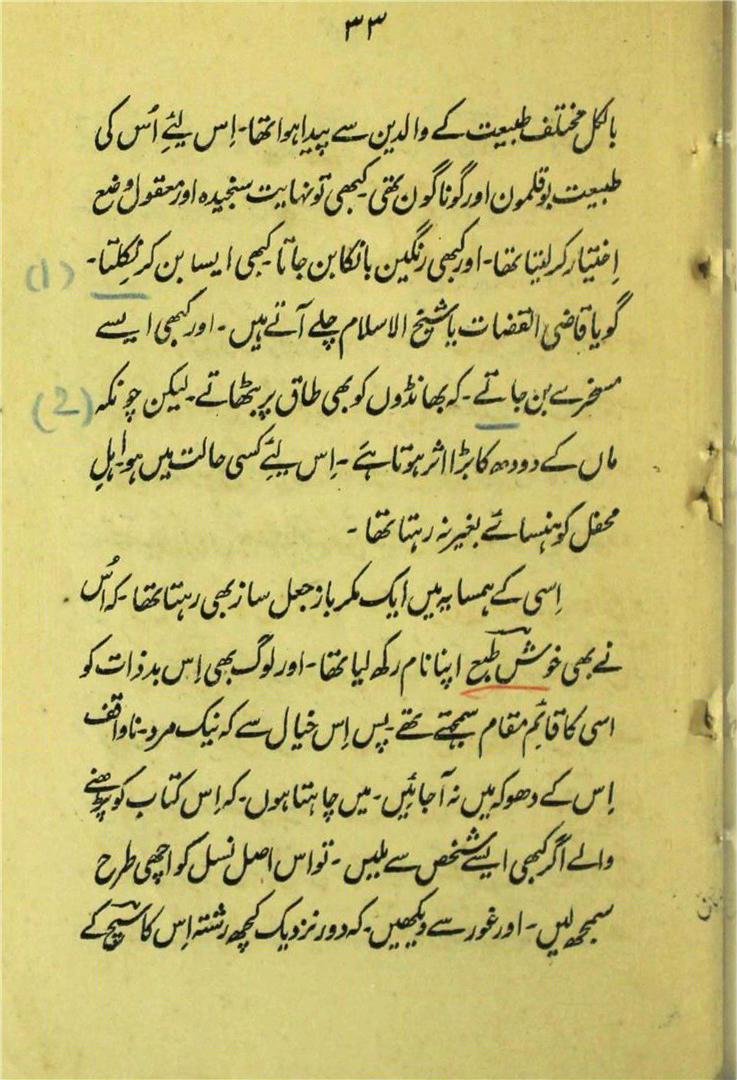 ۳۳
بالکل مختلف طبیعت کے والدین سے پیدا ہوا تھا۔ اِس لئے اُس کی
طبیعت بوقلمون اور گوناگون تھی۔ کبھی تو نہایت سنجیدہ اور معقول وضع
اِختیار کر لیتا تھا۔ اور کبھی رنگین بانکا بن جاتا کبھی ایسا بن کر نکلتا۔ (1)
گویا قاضی القضات یا شیخ الاسلام چلے آتے ہیں۔ اور کبھی ایسے
مسخرے بن جاتے۔ کہ بھانڈوں کو بھی طاق پر بٹھاتے۔ لیکن چونکہ (2)
ماں کے دودھ کا بڑا اثر ہوتا ہے۔ اِس لئے کسی حالت میں ہو اہلِ
محفل کو ہنسائے بغیر نہ رہتا تھا۔
اِسی کے ہمسایہ میں ایک مکر باز جعل ساز بھی رہتا تھا۔ کہ اُس
نے بھی خوش طبع اپنا نام رکھ لیا تھا۔ اور لوگ بھی اِس بدذات کو
اسی کا قائم مقام سمجھتے تھے۔ پس اِس خیال سے کہ نیک مرد۔ ناواقف
اِس کے دھوکہ میں نہ آ جائیں۔ میں چاہتا ہوں۔ کہ اِس کتاب کو پڑھنے
والے اگر کبھی ایسے شخص سے ملیں۔ تو اس اصل نسل کو اچھی طرح
سمجھ لیں۔ اور غور سے دیکھیں۔ کہ دور نزدیک کچھ رشتہ اِس کا سچ کے